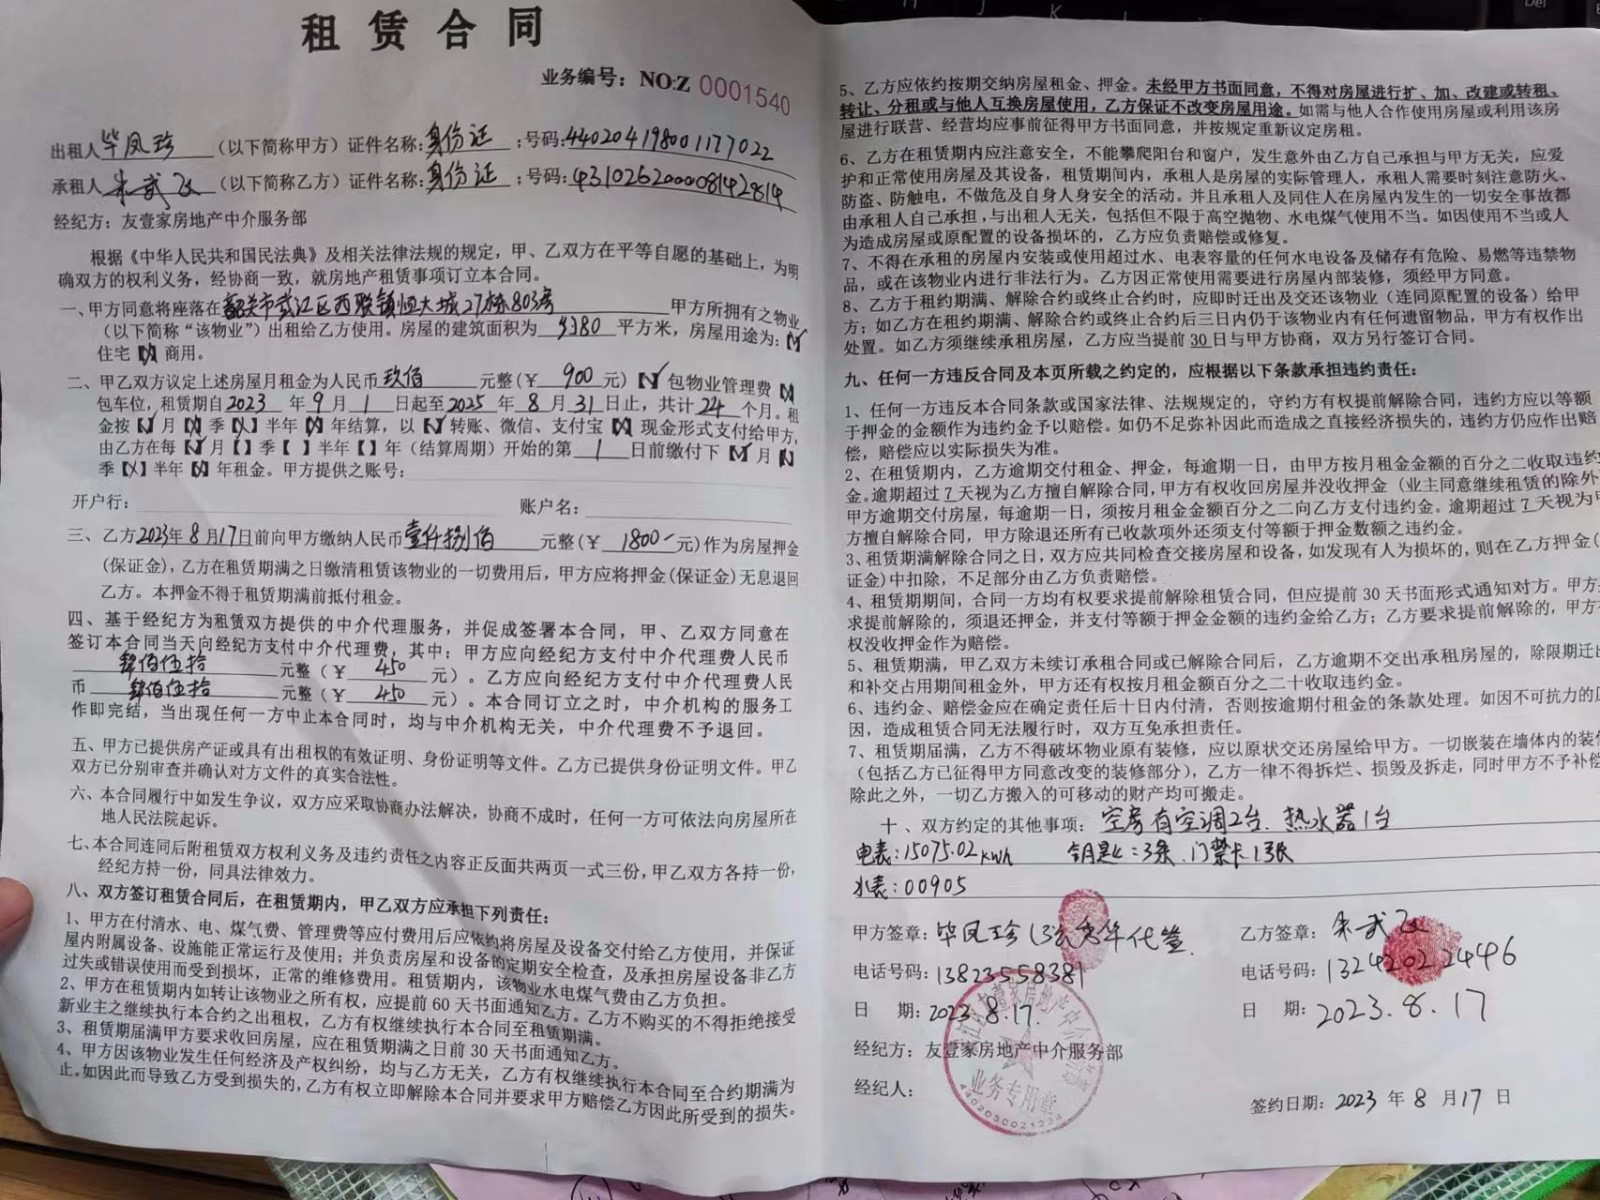 租赁合同
业务编号：NO:Z 0001540
出租人毕凤珍（以下简称甲方）证件名称：身份证；号码：440204198001177022
承租人朱武（以下简称乙方）证件名称：身份证；号码：
经纪方：友壹家房地产中介服务部
根据《中华人民共和国民法典》及相关法律法规的规定，甲、乙双方在平等自愿的基础上，为明
确双方的权利义务，经协商一致，就房地产租赁事项订立本合同。
一、甲方同意将座落在韶关市武江区西联镇恒大城27栋803房 甲方所拥有之物业
（以下简称“该物业”）出租给乙方使用。房屋的建筑面积为 平方米，房屋用途为：【✓】
住宅【X】商用。
二、甲乙双方议定上述房屋月租金为人民币玖佰 元整（￥ 900 元）【✓】包物业管理费【X】
包车位，租赁期自2023年9月1日起至2025年8月31日止，共计24个月。租
金按【✓】月【X】季【X】半年【X】年结算，以【✓】转账、微信、支付宝【X】现金形式支付给甲方，
由乙方在每【✓】月【】季【】半年【】年（结算周期）开始的第 1 日前缴付下【✓】月【X】
季【X】半年【X】年租金。甲方提供之账号：
开户行： 账户名：
三、乙方2023年8月17日前向甲方缴纳人民币壹仟捌佰 元整（￥ 1800- 元）作为房屋押金
（保证金），乙方在租赁期满之日缴清租赁该物业的一切费用后，甲方应将押金（保证金）无息退回
乙方。本押金不得于租赁期满前抵付租金。
四、基于经纪方为租赁双方提供的中介代理服务，并促成签署本合同，甲、乙双方同意在
签订本合同当天向经纪方支付中介代理费，其中：甲方应向经纪方支付中介代理费人民币
肆佰伍拾 元整（￥ 450 元）。乙方应向经纪方支付中介代理费人民
币 肆佰伍拾 元整（￥ 450 元）。本合同订立之时，中介机构的服务工
作即完结，当出现任何一方中止本合同时，均与中介机构无关，中介代理费不予退回。
五、甲方已提供房产证或具有出租权的有效证明、身份证明等文件。乙方已提供身份证明文件。甲乙
双方已分别审查并确认对方文件的真实合法性。
六、本合同履行中如发生争议，双方应采取协商办法解决，协商不成时，任何一方可依法向房屋所在
地人民法院起诉。
七、本合同连同后附租赁双方权利义务及违约责任之内容正反面共两页一式三份，甲乙双方各持一份，
经纪方持一份，同具法律效力。
八、双方签订租赁合同后，在租赁期内，甲乙双方应承担下列责任：
1、甲方在付清水、电、煤气费、管理费等应付费用后应依约将房屋及设备交付给乙方使用，并保证
屋内附属设备、设施能正常运行及使用；并负责房屋和设备的定期安全检查，及承担房屋设备非乙方
过失或错误使用而受到损坏，正常的维修费用。租赁期内，该物业水电煤气费由乙方负担。
2、甲方在租赁期内如转让该物业之所有权，应提前60天书面通知乙方。乙方不购买的不得拒绝接受
新业主之继续执行本合约之出租权，乙方有权继续执行本合同至租赁期满。
3、租赁期届满甲方要求收回房屋，应在租赁期满之日前30天书面通知乙方。
4、甲方因该物业发生任何经济及产权纠纷，均与乙方无关，乙方有权继续执行本合同至合约期满为
止。如因此而导致乙方受到损失的，乙方有权立即解除本合同并要求甲方赔偿乙方因此所受到的损失。
5、乙方应依约按期交纳房屋租金、押金。未经甲方书面同意，不得对房屋进行扩、加、改建或转租、
转让、分租或与他人互换房屋使用，乙方保证不改变房屋用途。如需与他人合作使用房屋或利用该房
屋进行联营、经营均应事前征得甲方书面同意，并按规定重新议定房租。
6、乙方在租赁期内应注意安全，不能攀爬阳台和窗户，发生意外由乙方自己承担与甲方无关，应爱
护和正常使用房屋及其设备，租赁期间内，承租人是房屋的实际管理人，承租人需要时刻注意防火、
防盗、防触电，不做危及自身人身安全的活动。并且承租人及同住人在房屋内发生的一切安全事故都
由承租人自己承担，与出租人无关，包括但不限于高空抛物、水电煤气使用不当。如因使用不当或人
为造成房屋或原配置的设备损坏的，乙方应负责赔偿或修复。
7、不得在承租的房屋内安装或使用超过水、电表容量的任何水电设备及储存有危险、易燃等违禁物
品，或在该物业内进行非法行为。乙方因正常使用需要进行房屋内部装修，须经甲方同意。
8、乙方于租约期满、解除合约或终止合约时，应即时迁出及交还该物业（连同原配置的设备）给甲
方；如乙方在租约期满、解除合约或终止合约后三日内仍于该物业内有任何遗留物品，甲方有权作出
处置。如乙方须继续承租房屋，乙方应当提前30日与甲方协商，双方另行签订合同。
九、任何一方违反合同及本页所载之约定的，应根据以下条款承担违约责任：
1、任何一方违反本合同条款或国家法律、法规规定的，守约方有权提前解除合同，违约方应以等额
于押金的金额作为违约金予以赔偿。如仍不足弥补因此而造成之直接经济损失的，违约方仍应作出赔
偿，赔偿应以实际损失为准。
2、在租赁期内，乙方逾期交付租金、押金，每逾期一日，由甲方按月租金金额的百分之二收取违约
金。逾期超过7天视为乙方擅自解除合同，甲方有权收回房屋并没收押金（业主同意继续租赁的除外
甲方逾期交付房屋，每逾期一日，须按月租金金额百分之二向乙方支付违约金。逾期超过7天视为甲
方擅自解除合同，甲方除退还所有已收款项外还须支付等额于押金数额之违约金。
3、租赁期满解除合同之日，双方应共同检查交接房屋和设备，如发现有人为损坏的，则在乙方押金（
证金）中扣除，不足部分由乙方负责赔偿。
4、租赁期期间，合同一方均有权要求提前解除租赁合同，但应提前30天书面形式通知对方。甲方
求提前解除的，须退还押金，并支付等额于押金金额的违约金给乙方；乙方要求提前解除的，甲方
权没收押金作为赔偿。
5、租赁期满，甲乙双方未续订承租合同或已解除合同后，乙方逾期不交出承租房屋的，除限期迁出
和补交占用期间租金外，甲方还有权按月租金额百分之二十收取违约金。
6、违约金、赔偿金应在确定责任后十日内付清，否则按逾期付租金的条款处理。如因不可抗力的原
因，造成租赁合同无法履行时，双方互免承担责任。
7、租赁期届满，乙方不得破坏物业原有装修，应以原状交还房屋给甲方。一切嵌装在墙体内的装修
（包括乙方已征得甲方同意改变的装修部分），乙方一律不得拆烂、损毁及拆走，同时甲方不予补偿
除此之外，一切乙方搬入的可移动的财产均可搬走。
十、双方约定的其他事项：空房有空调2台、热水器1台
电表：15075.02kwh 钥匙：3条、门禁卡1张
水表：00905
甲方签章：毕凤珍 代签
电话号码：13823558381
日 期：2023.8.17.
乙方签章：朱武
电话号码：13242022446
日 期：2023.8.17
经纪方：友壹家房地产中介服务部
经纪人：
业务专用章
签约日期：2023年8月17日